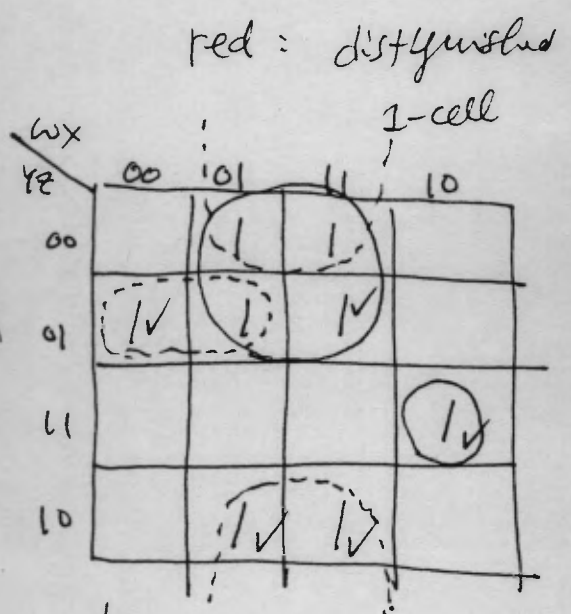 red : distguished
1-cell
WX
YZ 00 01 11 10
00 1 1
01 1✓ 1 1✓
11 1✓
10 1✓ 1✓